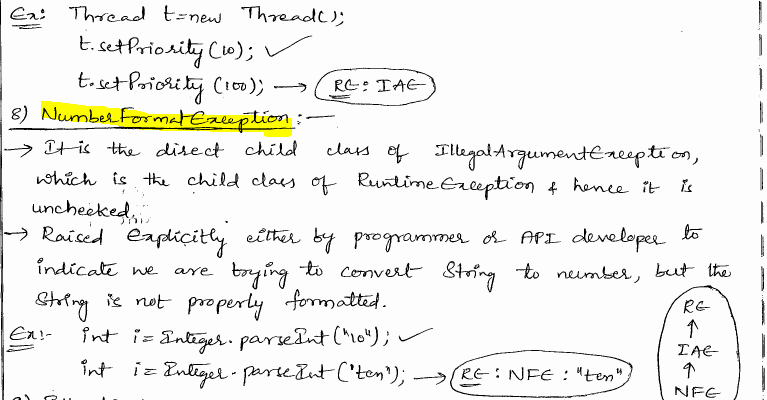 Ex: Thread t=new Thread();
t.setPriority(10); ✓
t.setPriority(100); → RE: IAE
8) NumberFormatException:-
→ It is the direct child class of IllegalArgumentException,
which is the child class of RuntimeException & hence it is
unchecked.
→ Raised Explicitly either by programmer or API developer to
indicate we are trying to convert String to number, but the
String is not properly formatted.
Ex:- int i=Integer.parseInt("10"); ✓
int i=Integer.parseInt("ten"); → RE: NFE: "ten"
RE
↑
IAE
↑
NFE